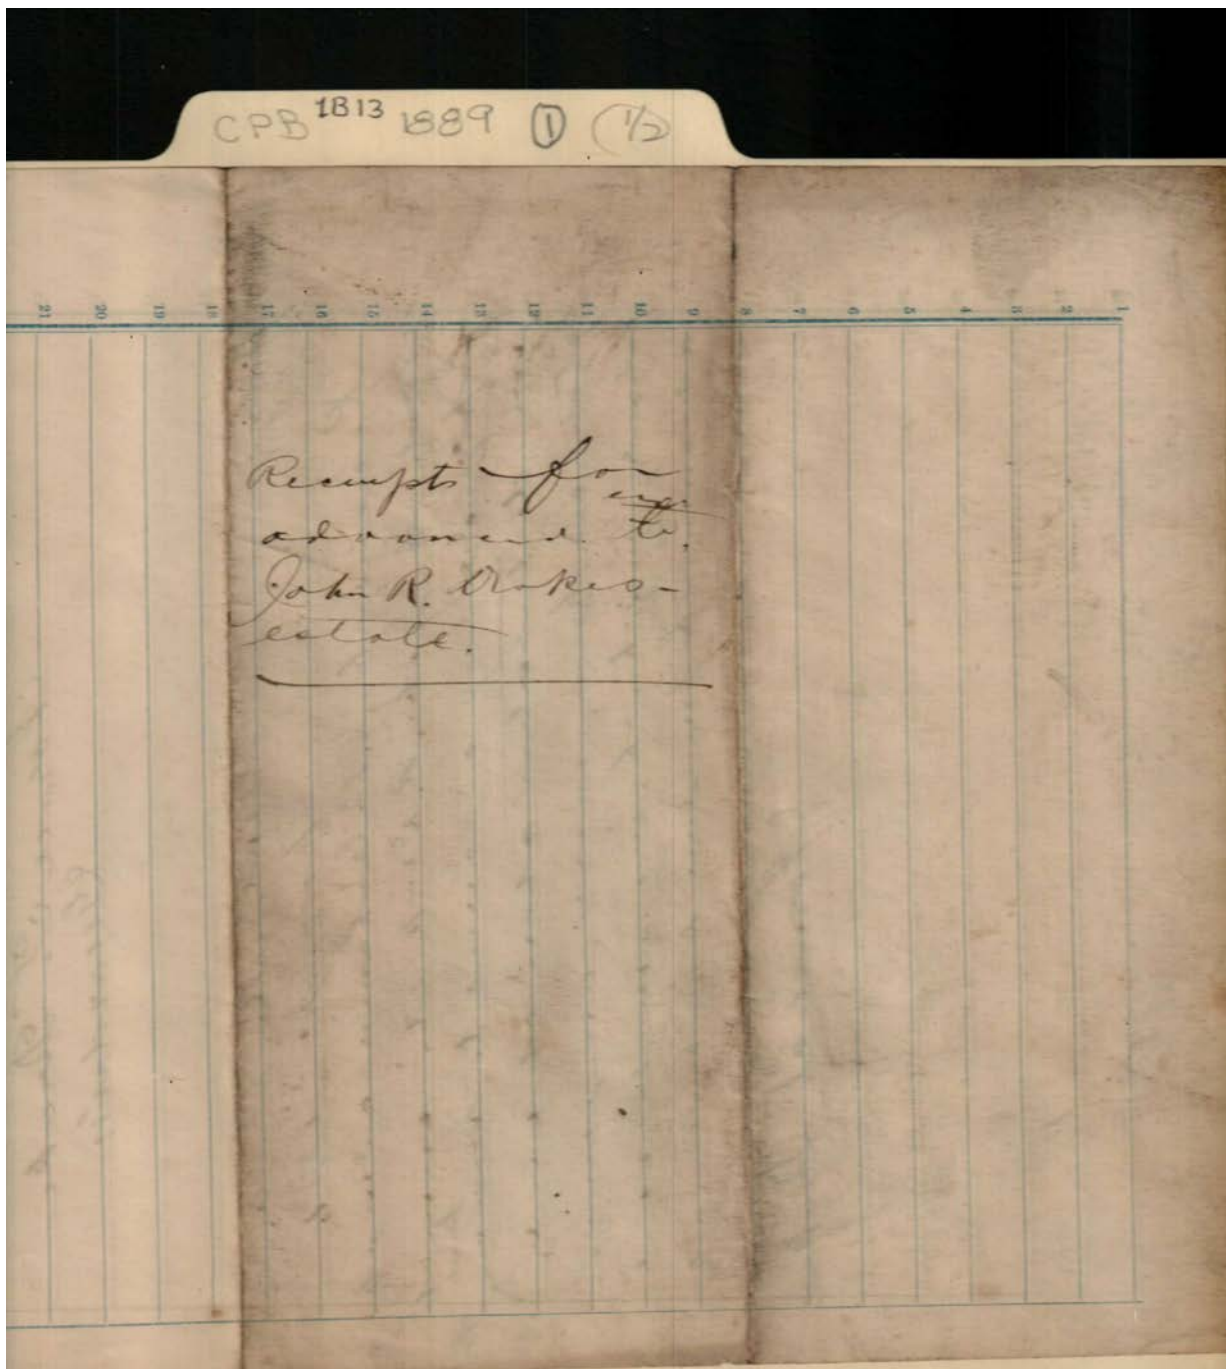 CPB 1B13 1889 ① (1/2)
21 20 19 18 17 16 15 14 13 12 11 10 9 8 7 6 5 4 3 2 1
Receipts for
advanced to
John R. Drakes
estate.